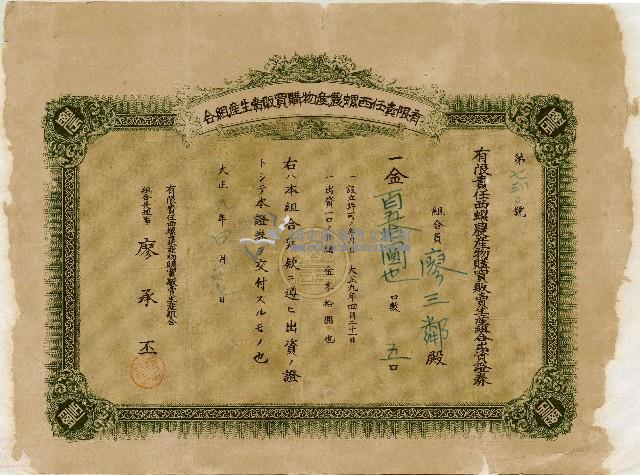 有限責任西螺農產物購買販賣生產組合
第
號
有限責任西螺農產物購買販賣生產組合出資證券
組合員 廖三鄰 殿
一金百五拾圓也 口數 五口
一設立許可ノ月日 大正九年四月二十一日
一出資一口ノ金額 金參拾圓也
右ハ本組合定款ニ遵ヒ出資ノ證
トシテ本證券ヲ交付スルモノ也
大正九年
月
日
有限責任西螺農產物購買販賣生產組合
組合長理事 廖承丕